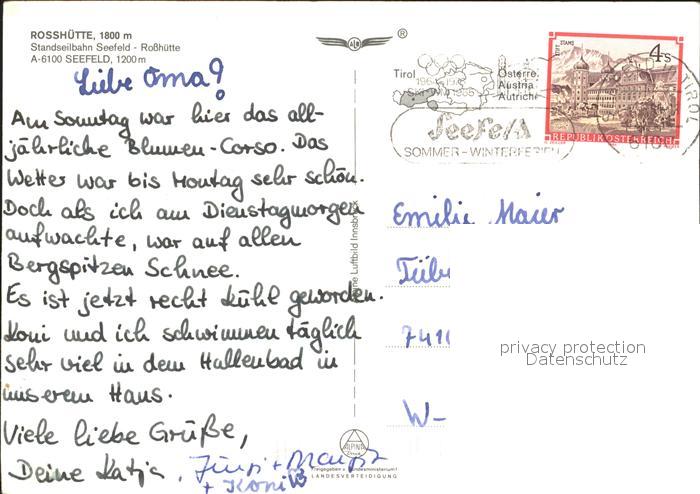 ROSSHÜTTE, 1800 m
Standseilbahn Seefeld - Roßhütte
A-6100 SEEFELD, 1200m
Liebe Oma!
Am Sonntag war hier das all-
jährliche Blumen-Corso. Das
Wetter war bis Montag sehr schön.
Doch als ich am Dienstagmorgen
aufwachte, war auf allen
Bergspitzen Schnee.
Es ist jetzt recht kühl geworden.
Koni und ich schwimmen täglich
sehr viel in dem Hallenbad in
unserem Haus.
Viele liebe Grüße,
Deine Katja,
+ Koni
ALPINA
Freigegeben v. Bundesministerium f.
LANDESVERTEIDIGUNG
Luftbild Innsbruck
®
Tirol
Österre.
Austria
Autriche
Seefeld
SOMMER - WINTERFERIEN
STIFT STAMS
4 S
REPUBLIK ÖSTERREICH
TIROL
Emilie Maier
Tüb
741
W-
privacy protection
Datenschutz